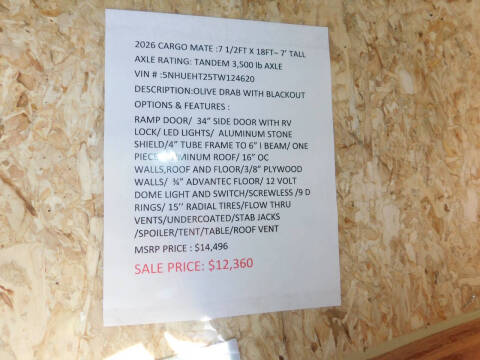 2026 CARGO MATE :7 1/2FT X 18FT– 7' TALL
AXLE RATING: TANDEM 3,500 lb AXLE
VIN # :5NHUEHT25TW124620
DESCRIPTION:OLIVE DRAB WITH BLACKOUT
OPTIONS & FEATURES :
RAMP DOOR/ 34" SIDE DOOR WITH RV
LOCK/ LED LIGHTS/ ALUMINUM STONE
SHIELD/4" TUBE FRAME TO 6" I BEAM/ ONE
PIECE ALUMINUM ROOF/ 16" OC
WALLS,ROOF AND FLOOR/3/8" PLYWOOD
WALLS/ ¾" ADVANTEC FLOOR/ 12 VOLT
DOME LIGHT AND SWITCH/SCREWLESS /9 D
RINGS/ 15'' RADIAL TIRES/FLOW THRU
VENTS/UNDERCOATED/STAB JACKS
/SPOILER/TENT/TABLE/ROOF VENT
MSRP PRICE : $14,496
SALE PRICE: $12,360